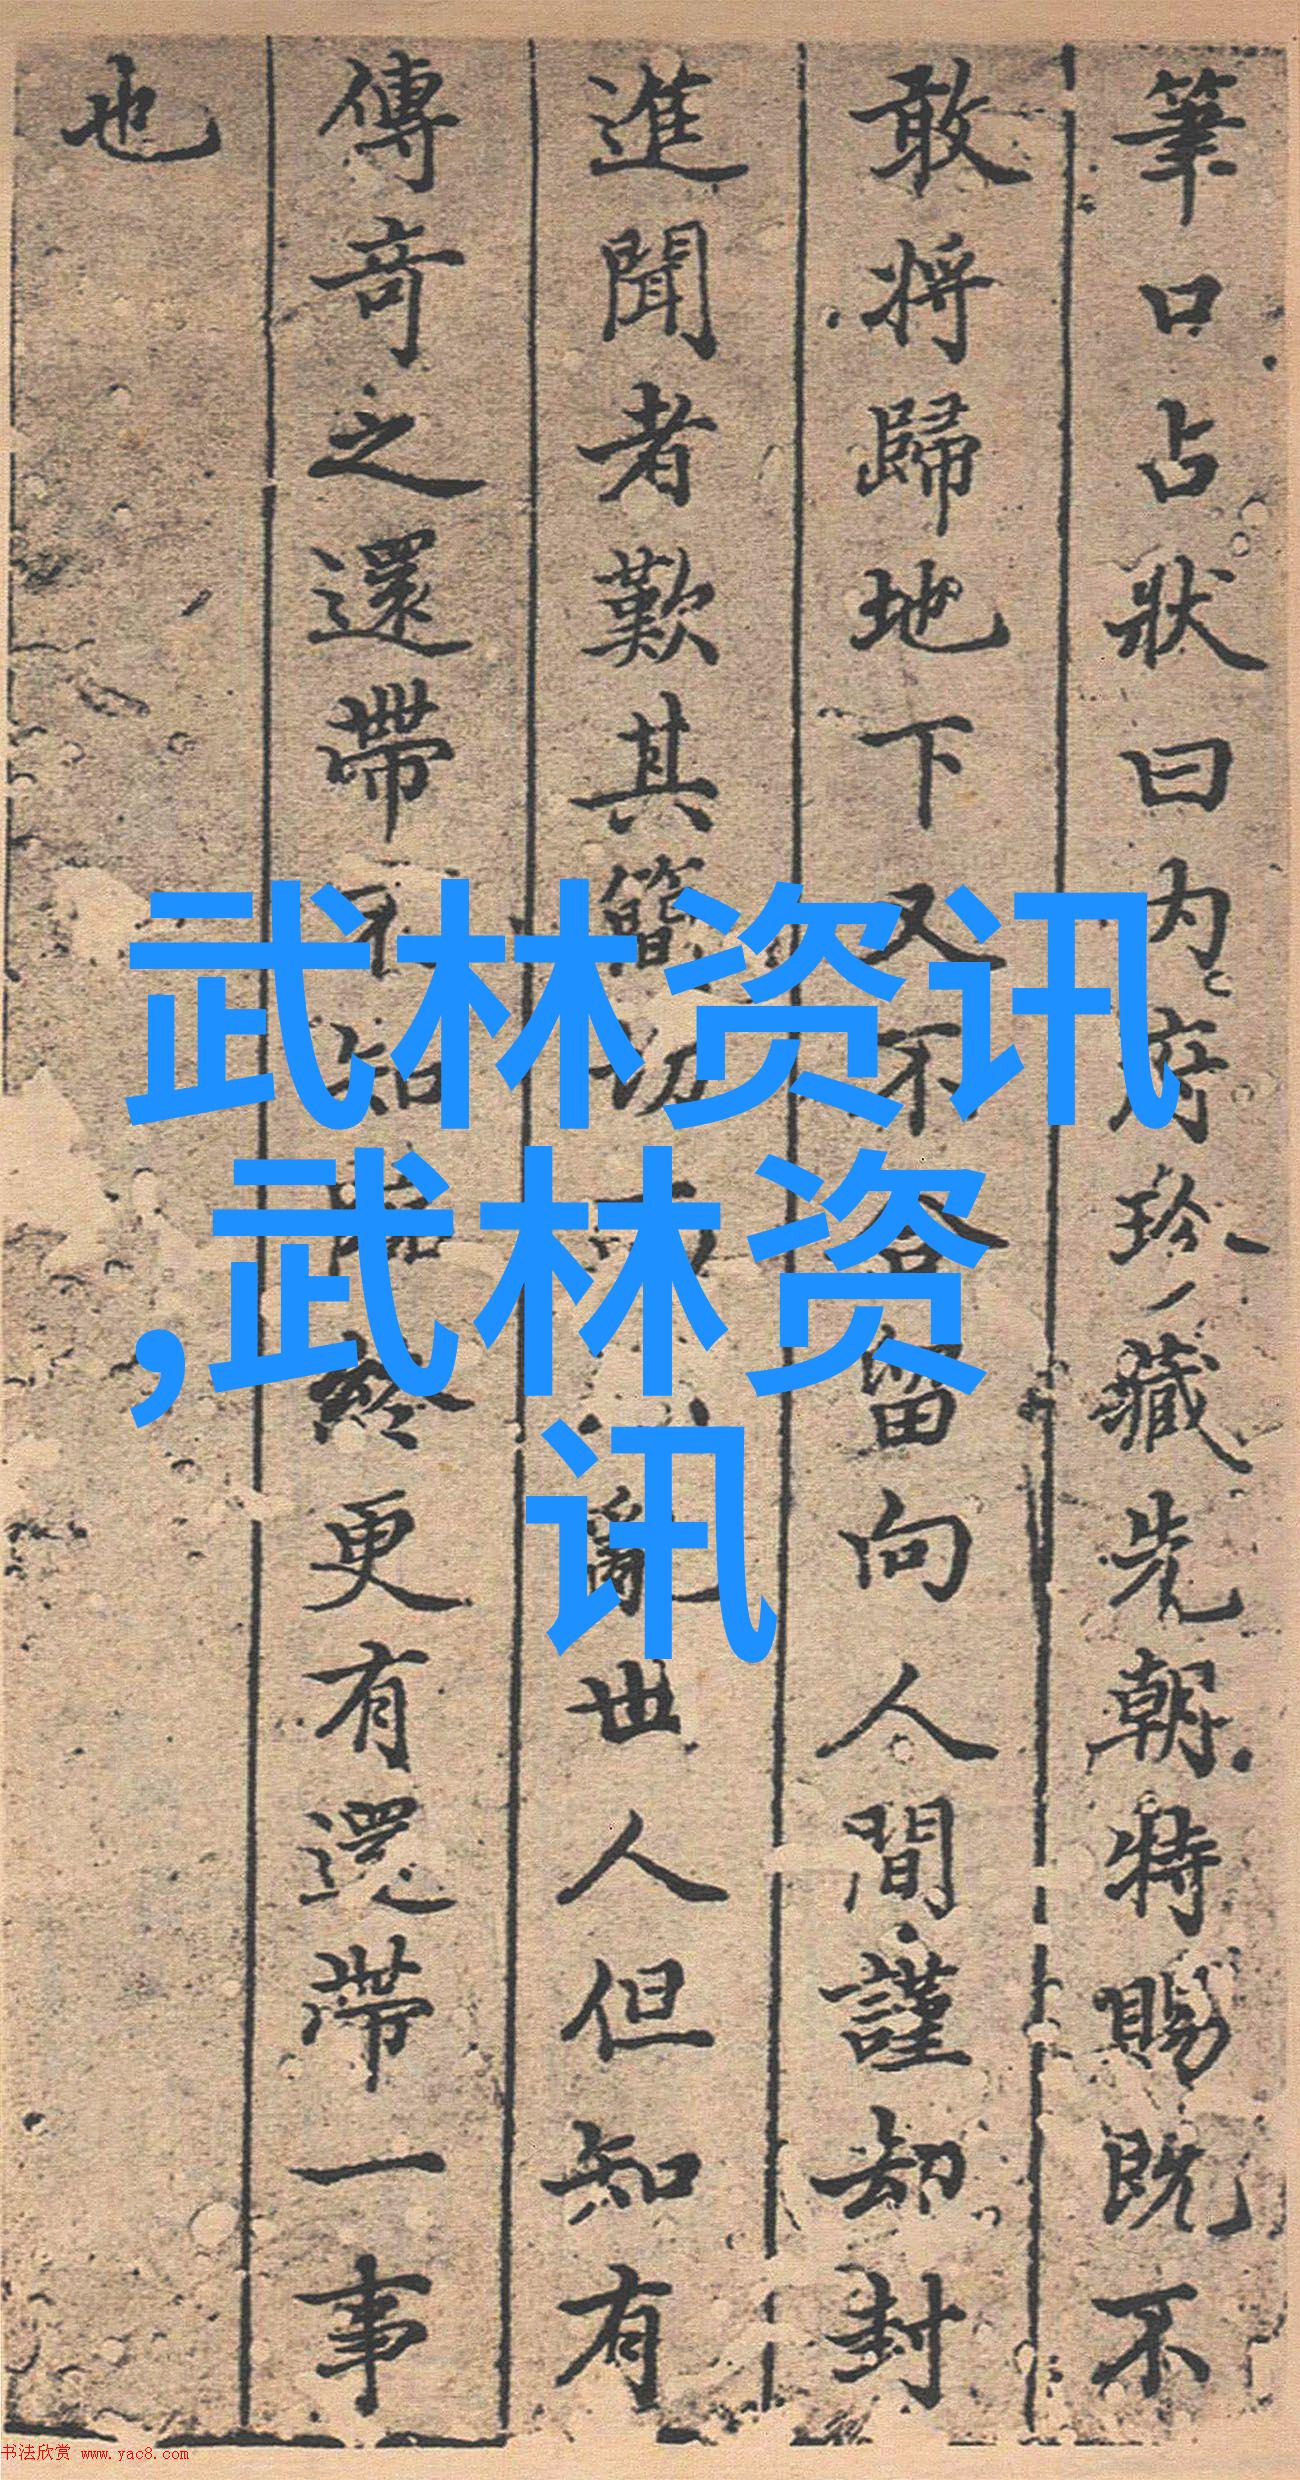 筆口占狀曰内府珍藏先朝特賜既不
敢將歸地下又不留向人間謹却封
進聞者歎其簡切亂世人但知有
傳奇之還帶不知終更有還帶一事
也
武林资讯
,武林资
讯
书法欣赏 www.yac8.com